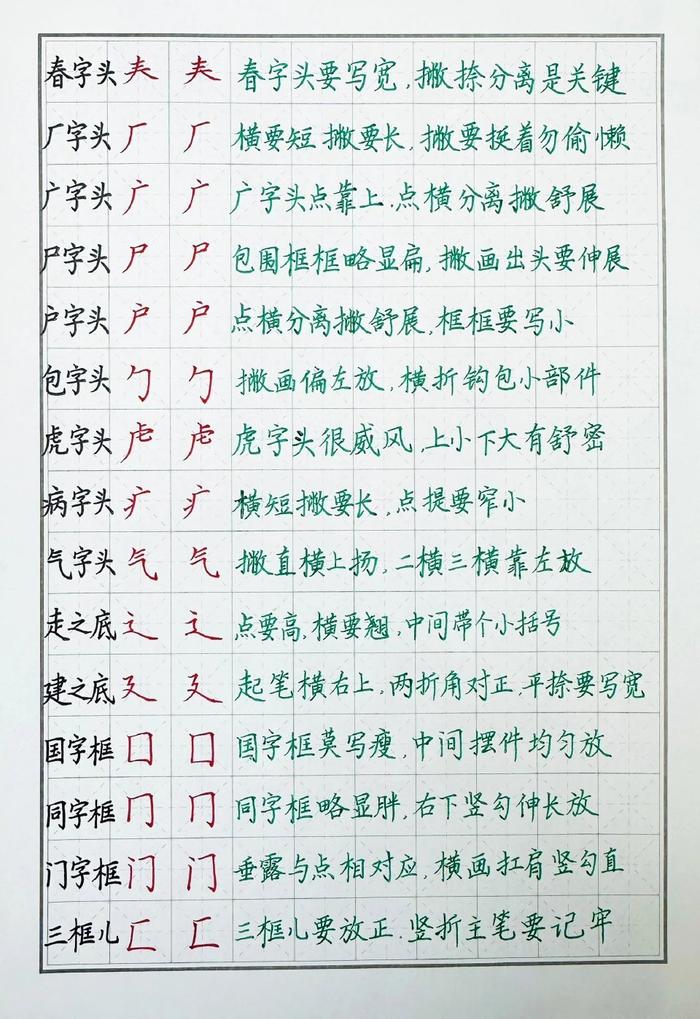 春字头 𡗗 𡗗 春字头要写宽,撇捺分离是关键
厂字头 厂 厂 横要短 撇要长,撇要挺着勿偷懒
广字头 广 广 广字头点靠上.点横分离撇舒展
尸字头 尸 尸 包围框框略显扁,撇画出头要伸展
户字头 户 户 点横分离撇舒展,框框要写小
包字头 勹 勹 撇画偏左放,横折钩包小部件
虎字头 虍 虍 虎字头很威风,上小下大有舒密
病字头 疒 疒 横短撇要长,点提要窄小
气字头 气 气 撇直横上扬,二横三横靠左放
走之底 辶 辶 点要高,横要翘,中间带个小括号
建之底 廴 廴 起笔横右上,两折角对正,平捺要写宽
国字框 囗 囗 国字框莫写瘦,中间摆件均匀放
同字框 冂 冂 同字框略显胖,右下竖勾伸长放
门字框 门 门 垂露与点相对应,横画扛肩竖勾直
三框儿 匚 匚 三框儿要放正.竖折主笔要记牢